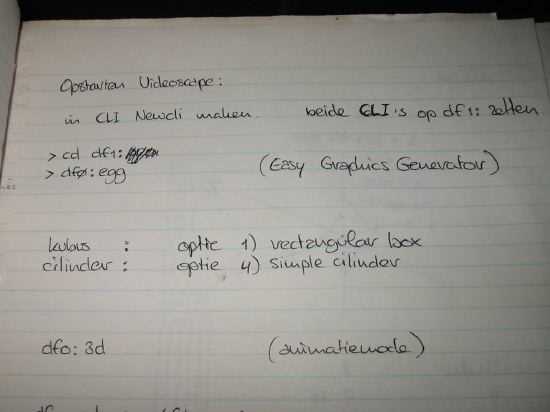 Opstarten Videoscape:
in CLI Newcli maken. beide CLI's op df1: zetten
> cd df1:
> df0: egg (Easy Graphics Generator)
kubus : optie 1) rectangular box
cilinder : optie 4) simple cilinder
df0: 3d (animatiemode)